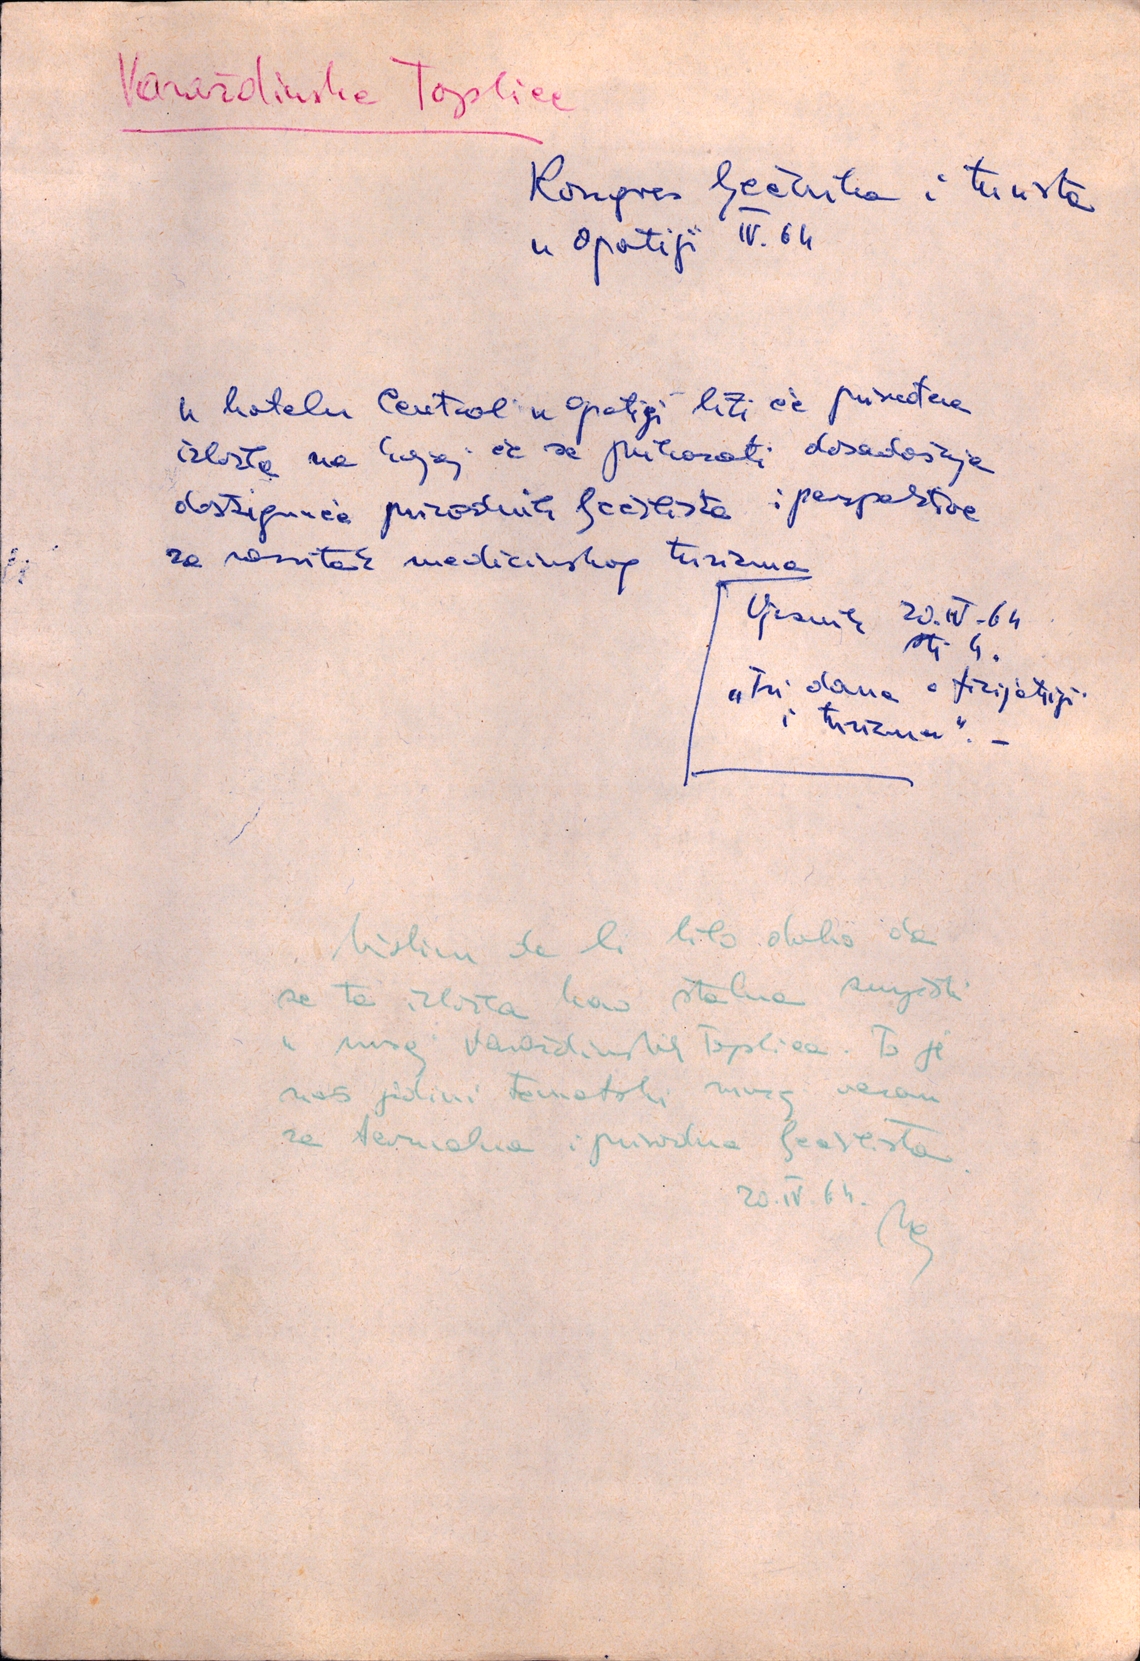 Varaždinske Toplice
Kongres liječnika i turista
u Opatiji IV. 64
u hotelu Central u Opatiji biti će priređena
izložba na kojoj će se prikazati dosadašnja
dostignuća prirodnih lječilišta i perspektive
za razvitak medicinskog turizma
Vjesnik 20.IV-64
str 4.
"Tri dana o fizijatriji
i turizmu". -
Mislim da bi bilo dobro da
se ta izložba kao stalna smjesti
u muzej Varaždinskih Toplica. To je
naš jedini tematski muzej vezan
za termalna i prirodna lječilišta.
20.IV.64.